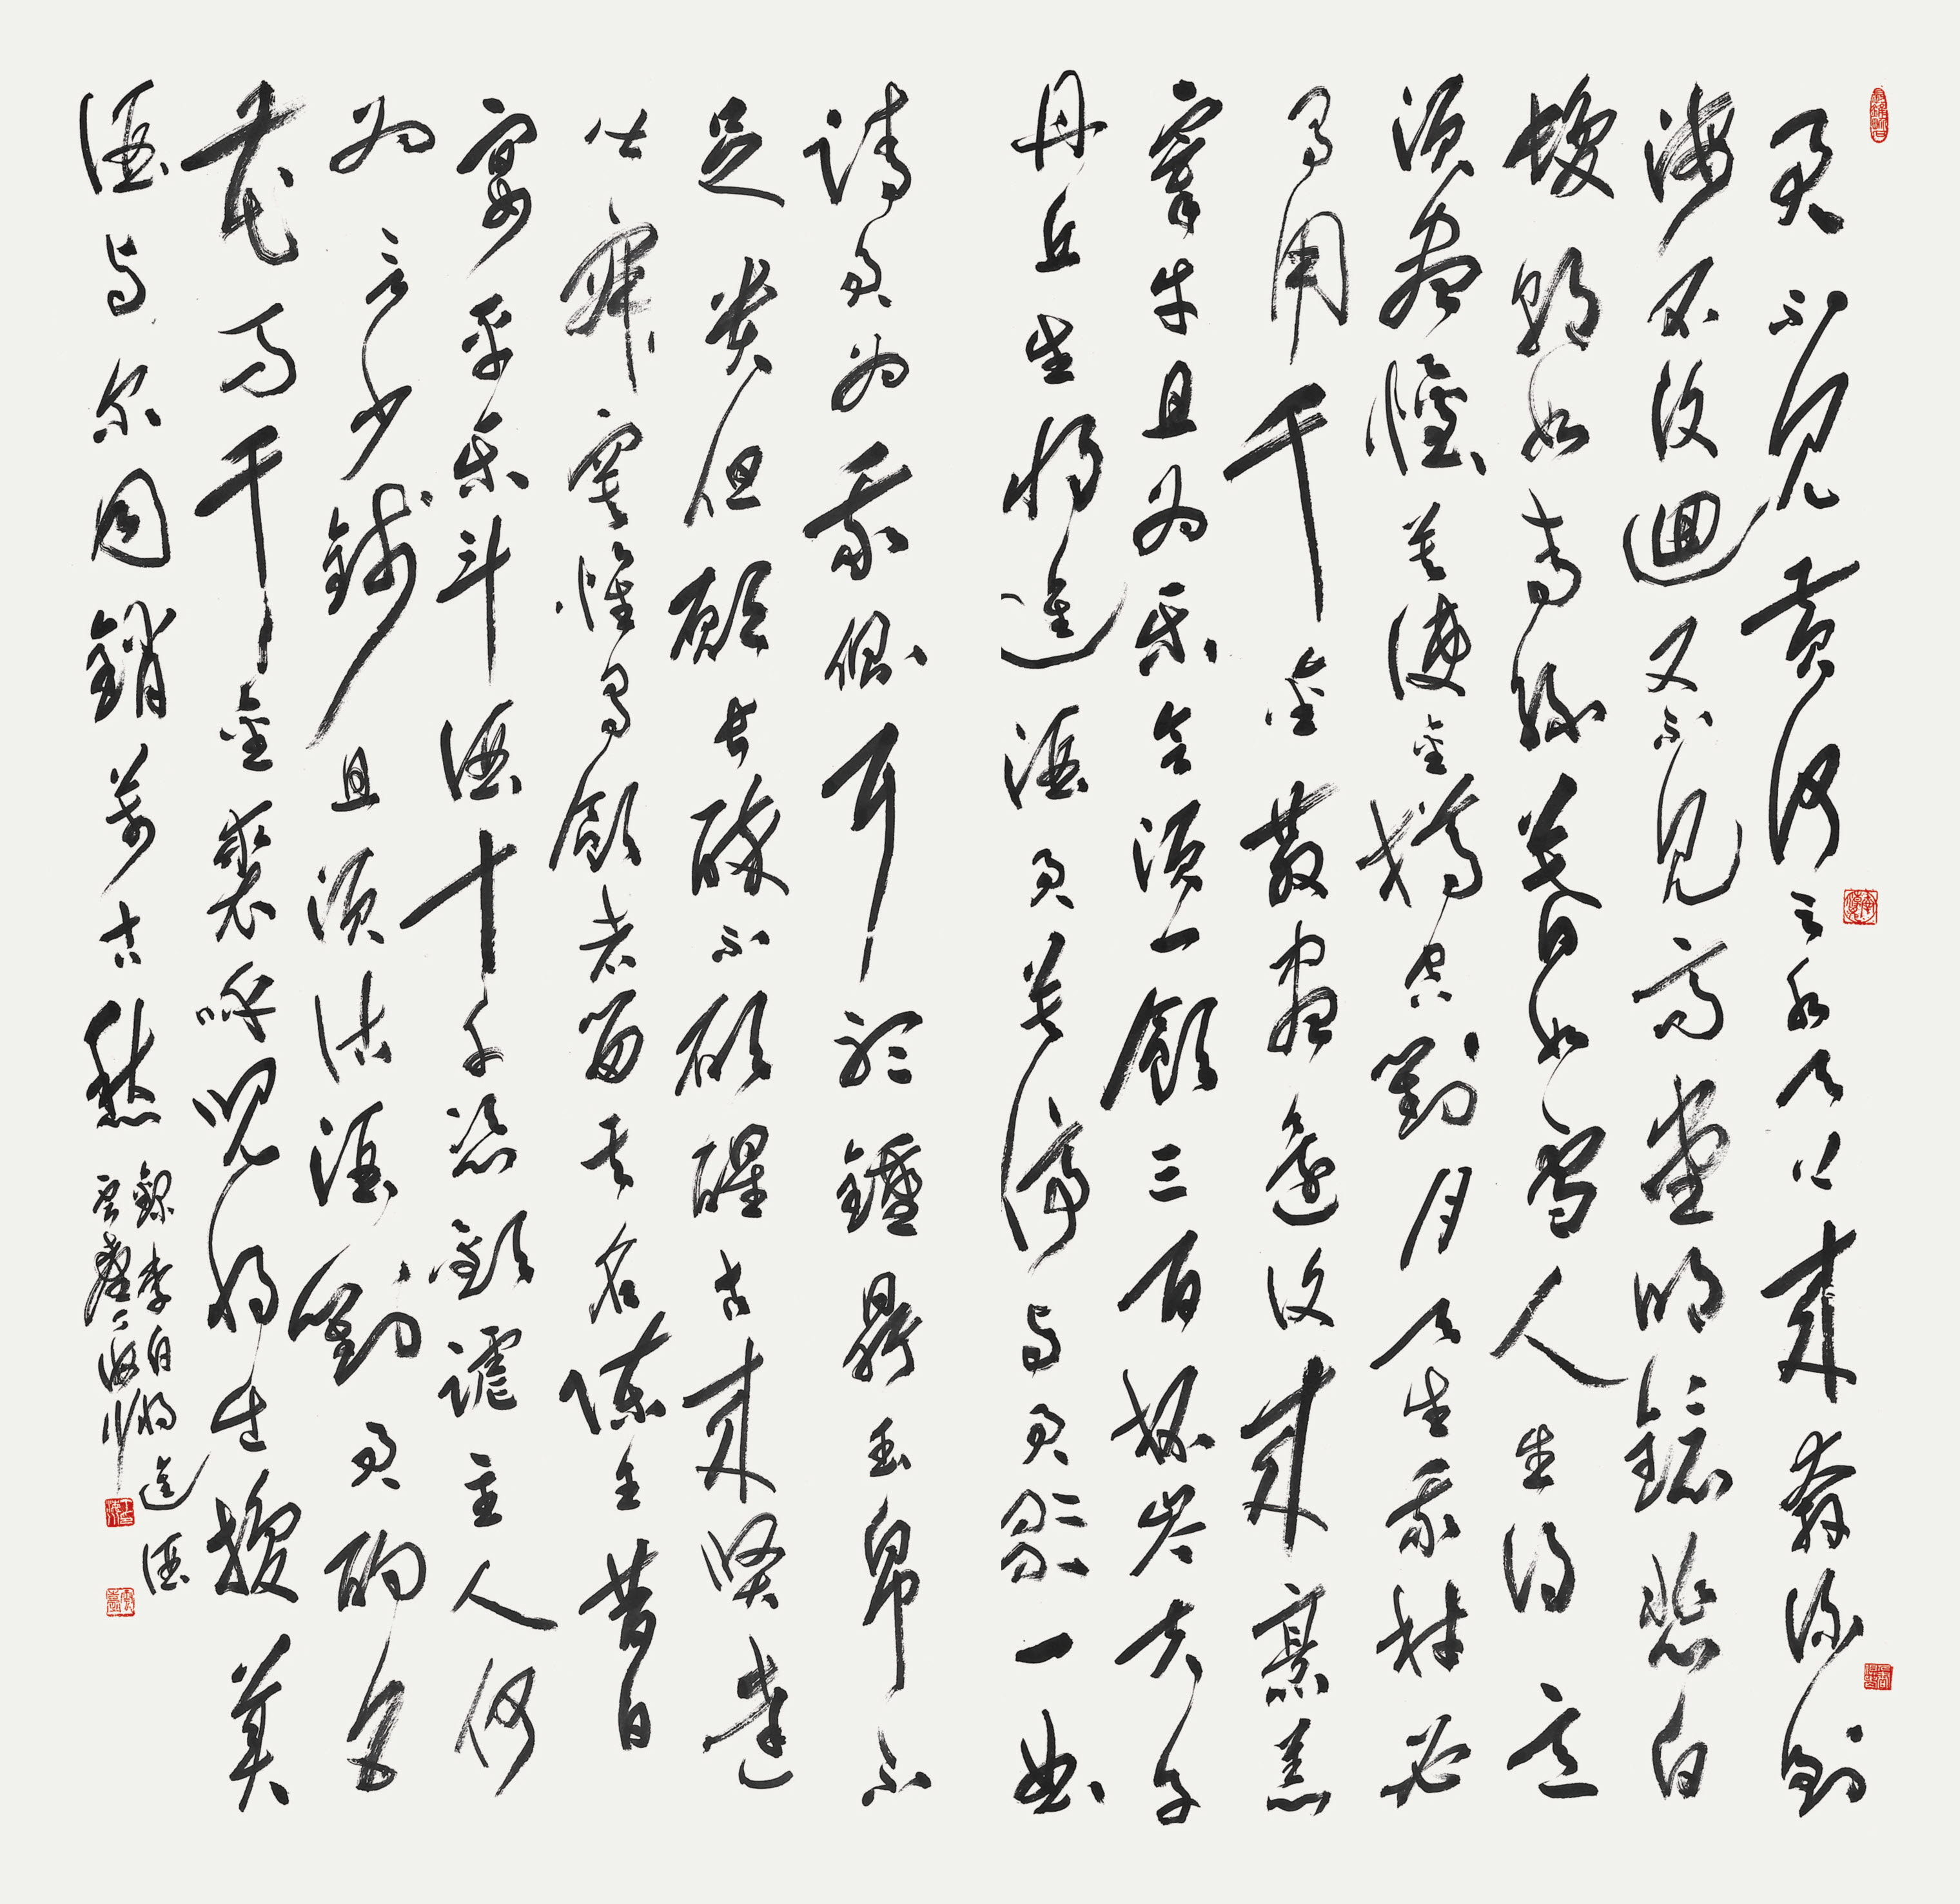 君不見黃河之水天上來奔流到
海不復迴又不見高堂明鏡悲白
髮朝如青絲暮如雪人生得意
須盡懽莫使金樽空對月天生我材必
有用千金散盡還復來烹羔
宰牛且为樂会須一飲三百杯岑夫子
丹丘生將進酒君莫停与君歌一曲
請君为我側耳聽鐘鼎玉帛不
足貴但願長醉不願醒古來賢達
皆寂寞惟有飲者留其名陳王昔日
宴平樂斗酒十千恣歡謔主人何
为言少錢且須沽酒對君酌五
花馬千金裘呼兒將出換美
酒与尔同銷萬古愁
錄李白將進酒